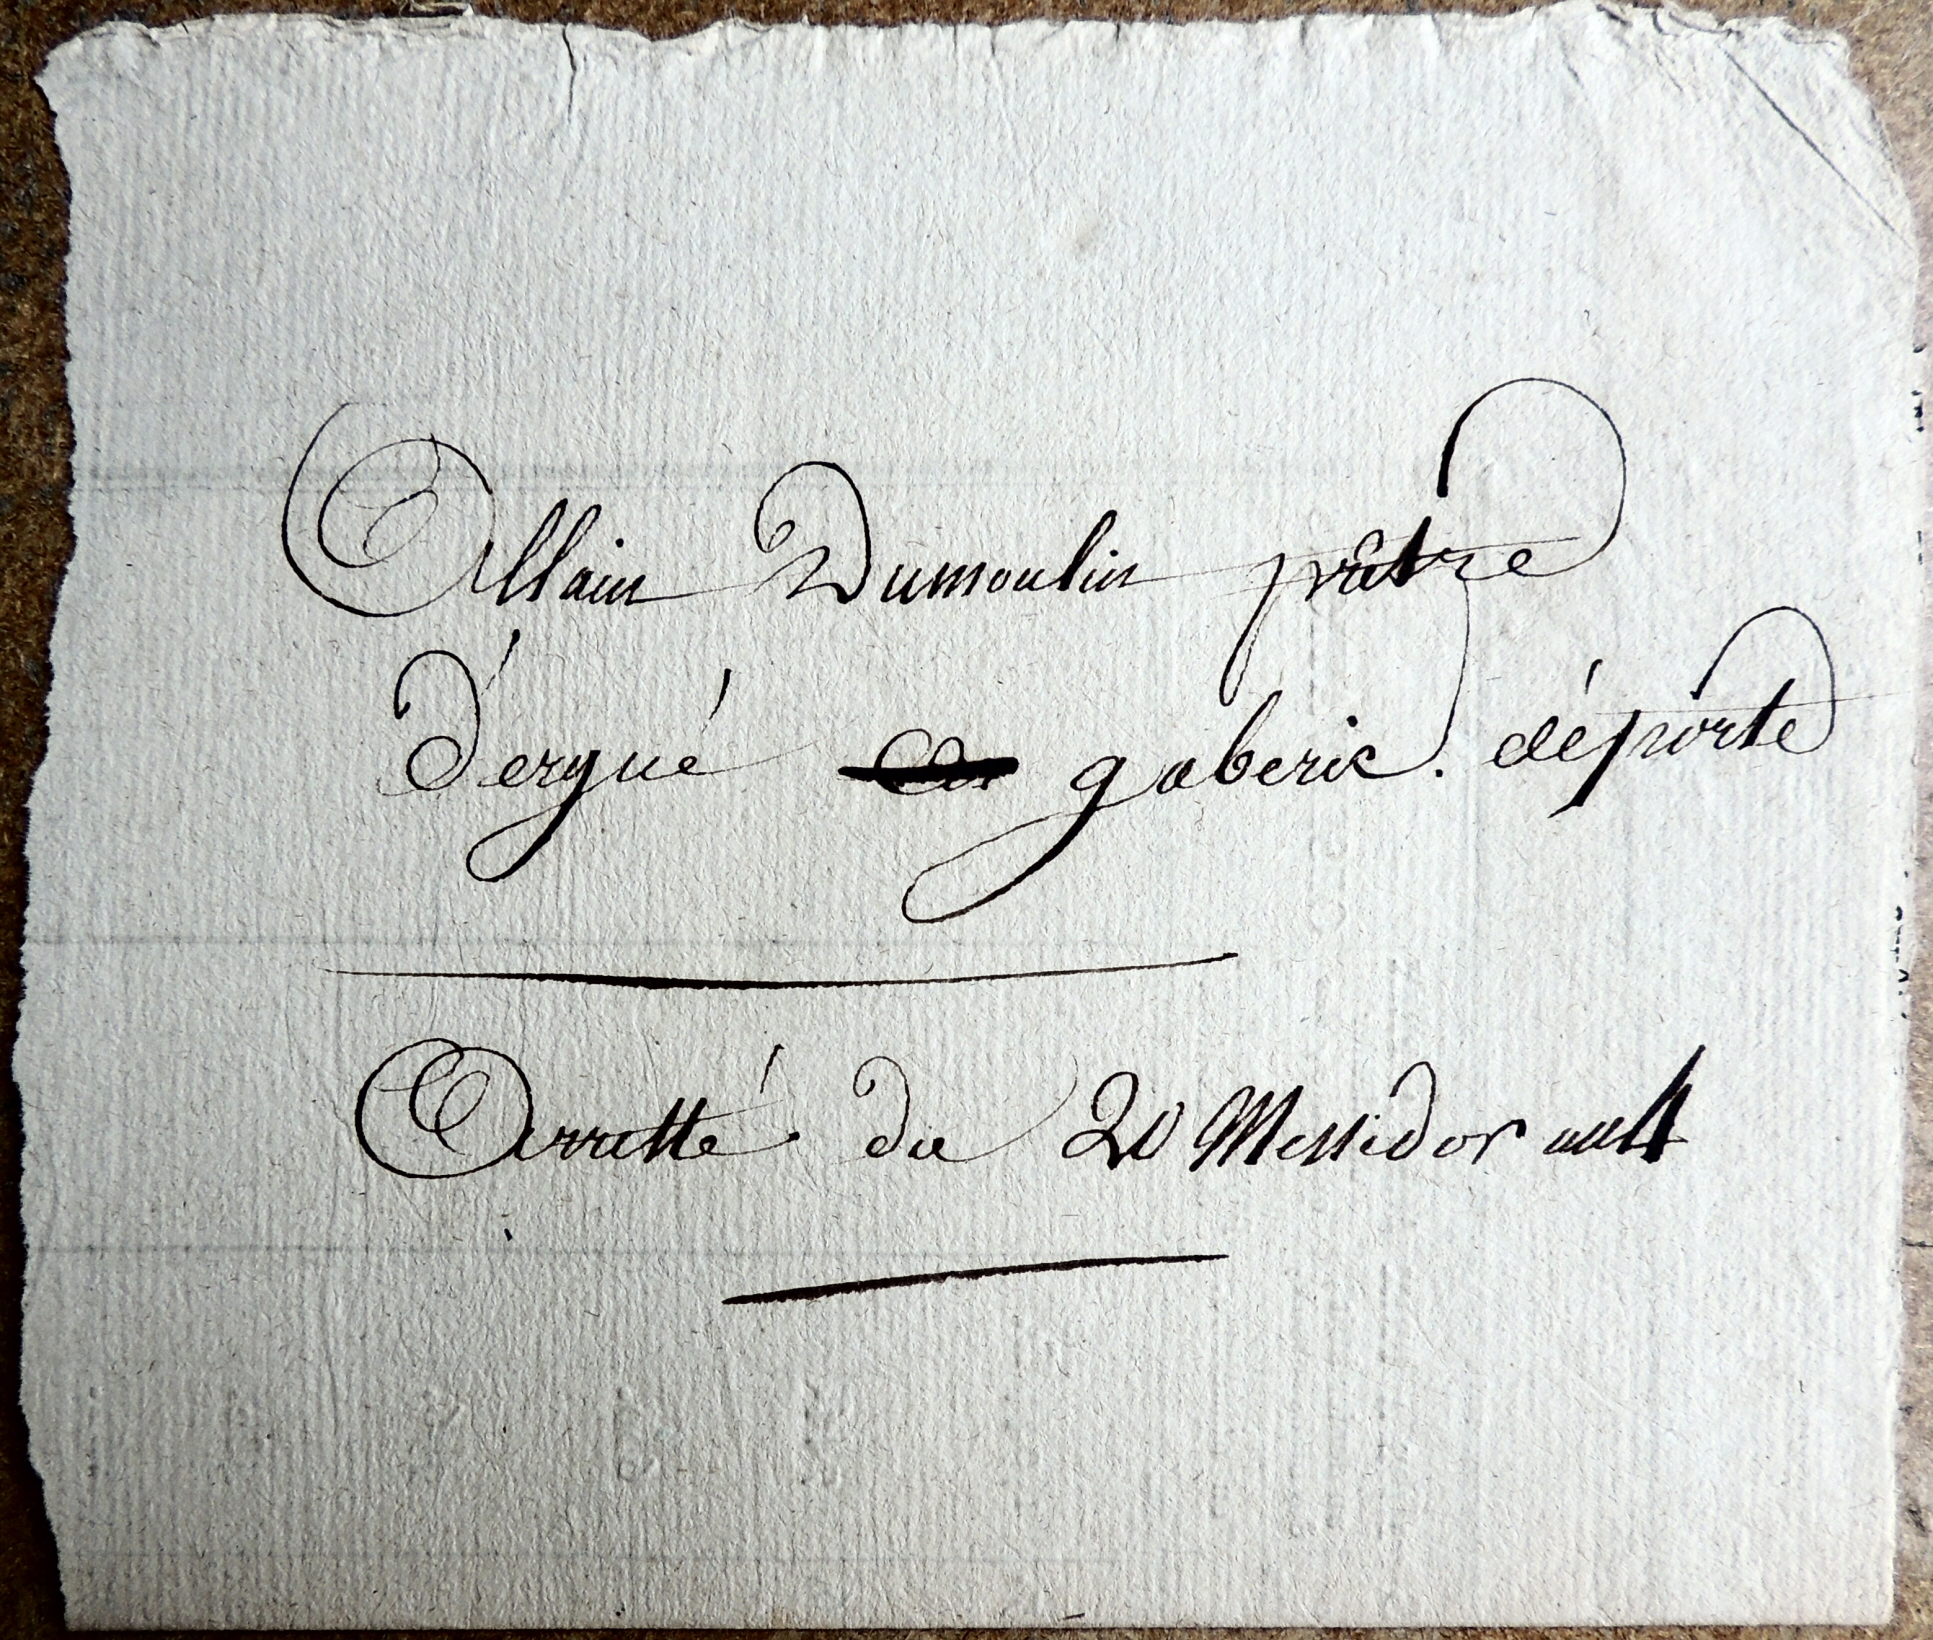 Allain Dumoulin prêtre
d'ergué gaberic. déporté
Arretté du 20 Messidor an 4